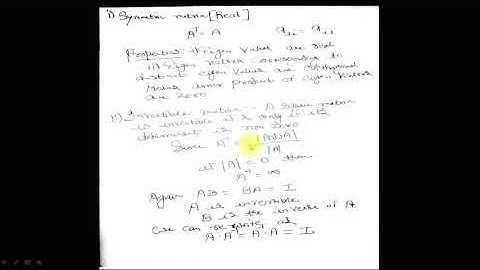 i) Symmetric matrix [Real]
A^T = A    a_ij = a_ji
Properties: i) Eigen Value are real
ii) Eigen vectors corresponding to
distinct eigen value are orthogonal
means inner product of eigen vectors
are zero
ii) Invertible matrix - A square matrix
is invertible if & only if its
determinant is non zero
Since A^-1 = |AdjA| / |A|
if |A| = 0 then
A^-1 = ∞
Again AB = BA = I
A is invertible
B is the inverse of A
we can write as
A·A = A·A = I